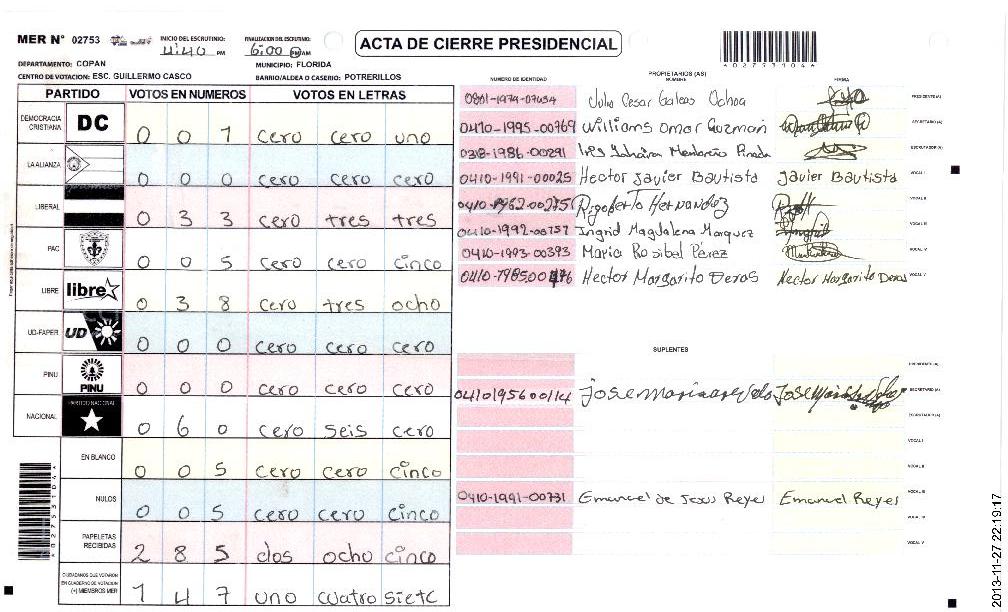 MER N° 02753 INICIO DEL ESCRUTINIO: 4:40 PM FINALIZACION DEL ESCRUTINIO: 6:00 PM/AM ACTA DE CIERRE PRESIDENCIAL
DEPARTAMENTO: COPAN MUNICIPIO: FLORIDA
CENTRO DE VOTACION: ESC. GUILLERMO CASCO BARRIO/ALDEA O CASERIO: POTRERILLOS
PARTIDO VOTOS EN NUMEROS VOTOS EN LETRAS
DEMOCRACIA CRISTIANA DC 0 0 1 cero cero uno
LA ALIANZA 0 0 0 cero cero cero
LIBERAL 0 3 3 cero tres tres
PAC 0 0 5 cero cero cinco
LIBRE libre 0 3 8 cero tres ocho
UD-FAPER UD 0 0 0 cero cero cero
PINU PINU 0 0 0 cero cero cero
NACIONAL PARTIDO NACIONAL 0 6 0 cero seis cero
EN BLANCO 0 0 5 cero cero cinco
NULOS 0 0 5 cero cero cinco
PAPELETAS RECIBIDAS 2 8 5 dos ocho cinco
CIUDADANOS QUE VOTARON EN CUADERNO DE VOTACION (+) MIEMBROS MER 1 4 7 uno cuatro siete
A02753104A
PROPIETARIOS (AS)
NUMERO DE IDENTIDAD NOMBRE FIRMA
Julio Cesar Galeas Ochoa PRESIDENTE (A)
0410-1995-00769 Williams Omar Guzman SECRETARIO (A)
0318-1986-00291 ESCRUTADOR (A)
0410-1991-00025 Hector Javier Bautista Javier Bautista VOCAL I
Rigoberto Hernandez VOCAL II
0410-1992-00757 Ingrid Magdalena Marquez VOCAL III
0410-1993-00393 Maria Rosibel Pérez VOCAL IV
Hector Margarito Deras Hector Margarito Deras VOCAL V
SUPLENTES
PRESIDENTE (A)
0410195600114 SECRETARIO (A)
ESCRUTADOR (A)
VOCAL I
VOCAL II
0410-1991-00731 Emanuel de Jesus Reyes Emanuel Reyes VOCAL III
VOCAL IV
VOCAL V
A02753104A
2013-11-27 22:19:17